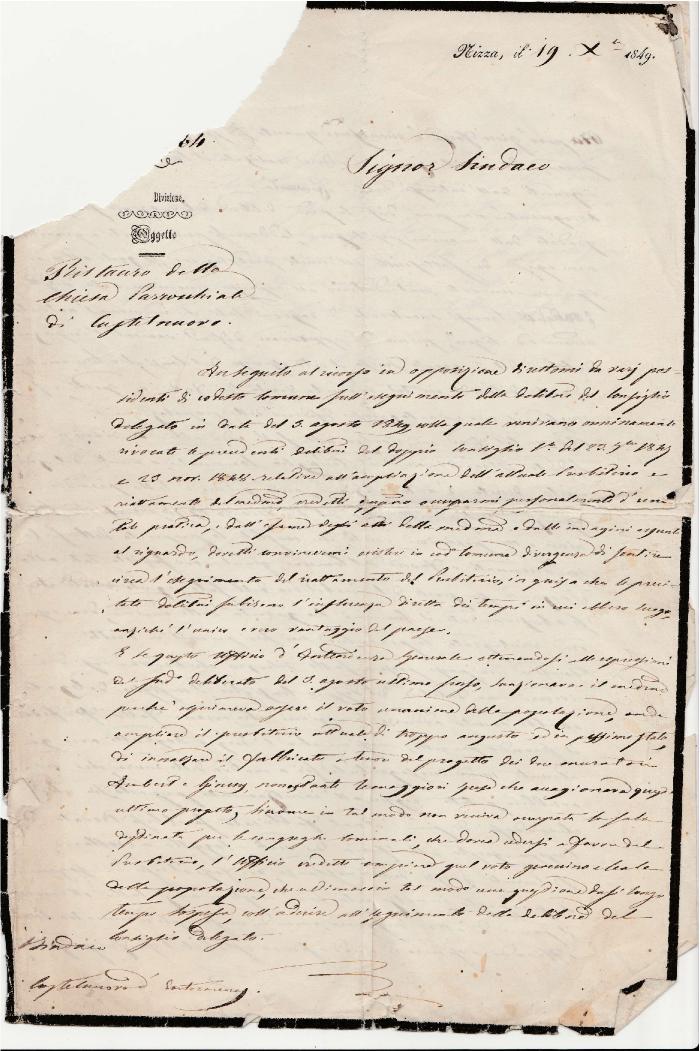 Nizza, il 19 Xbre 1849.
Signor Sindaco
Divisione,
Oggetto
Ristauro della
Chiesa Parrocchiale
di Castelnuovo.
In seguito al ricorso in opposizione direttomi da varj pos-
sidenti di codesto Comune sull'eseguimento della delibera del Consiglio
delegato in data del 3. agosto 1849 colla quale venivano onninamente
rivocate le precedenti delibere del doppio Consiglio del 23 1847
e 23 nov. 1848 relative all'ampliazione dell'attuale Presbiterio e
riattamento del medesimo credetti occuparmi personalmente d'una
tale pratica, e dall'esame degli atti della medesima e dalle indagini eseguite
al riguardo, dovetti convincermi esistere in cod.o Comune divergenza di sentire
circa l'eseguimento del riattamento del Presbiterio, in guisa che le preci-
tate delibere subirono l'influenza diretta dei tempi in cui ebbero luogo,
anziché l'unico e vero vantaggio del paese.
E se questo Uffizio d'Intendenza Generale attenendosi alle espressioni
del sud.o deliberato del 3. agosto ultimo scorso, sanzionava il medesimo
perché opinava essere il voto unanime della popolazione, onde
ampliare il presbiterio attuale di troppo angusto ed in pessimo stato,
di innalzare il fabbricato a tenor del progetto dei due
Aubert e nonostante le maggiori spese che cagionava quest'
ultimo progetto, siccome in tal modo non veniva occupata la sala
destinata per le congreghe comunali, che dovea cedersi a favor del
Presbiterio, l'Uffizio credette compiere quel voto genuino e leale
della popolazione, che ultimasse in tal modo una questione da sì lungo
tempo sospesa coll'aderire all'eseguimento della delibera del
Consiglio Delegato.
Sindaco
Castelnuovo d'